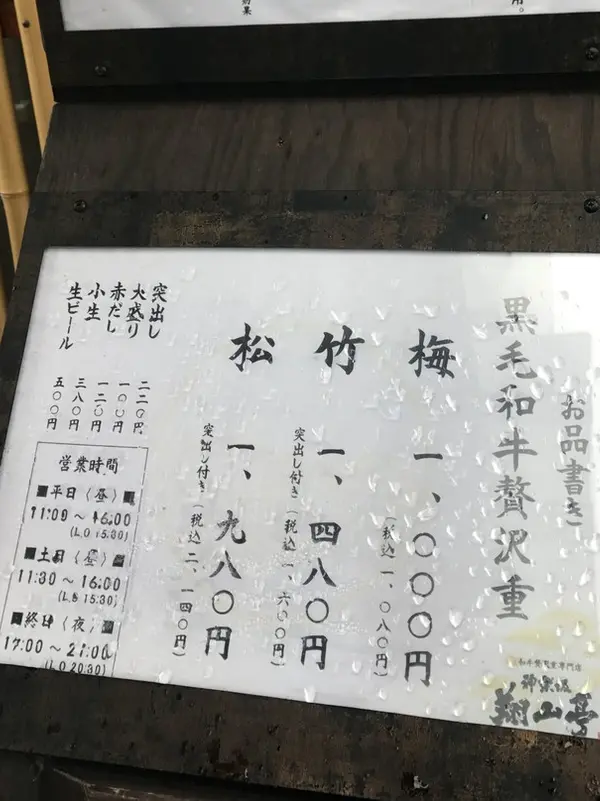 お品書き
黒毛和牛贅沢重
梅
一、〇〇〇円
(税込一、〇八〇円)
竹
一、四八〇円
突出し付き(税込一、六〇〇円)
松
一、九八〇円
突出し付き(税込二、一四〇円)
突出し 二二〇円
大盛り 一〇〇円
赤だし 一二〇円
小生 三八〇円
生ビール 五〇〇円
営業時間
■平日〈昼〉■
11:00～16:00
(L.O 15:30)
■土日〈昼〉■
11:30～16:00
(L.O 15:30)
■終日〈夜〉■
17:00～21:00
(L.O 20:30)
和牛贅沢重専門店
神楽坂
翔山亭